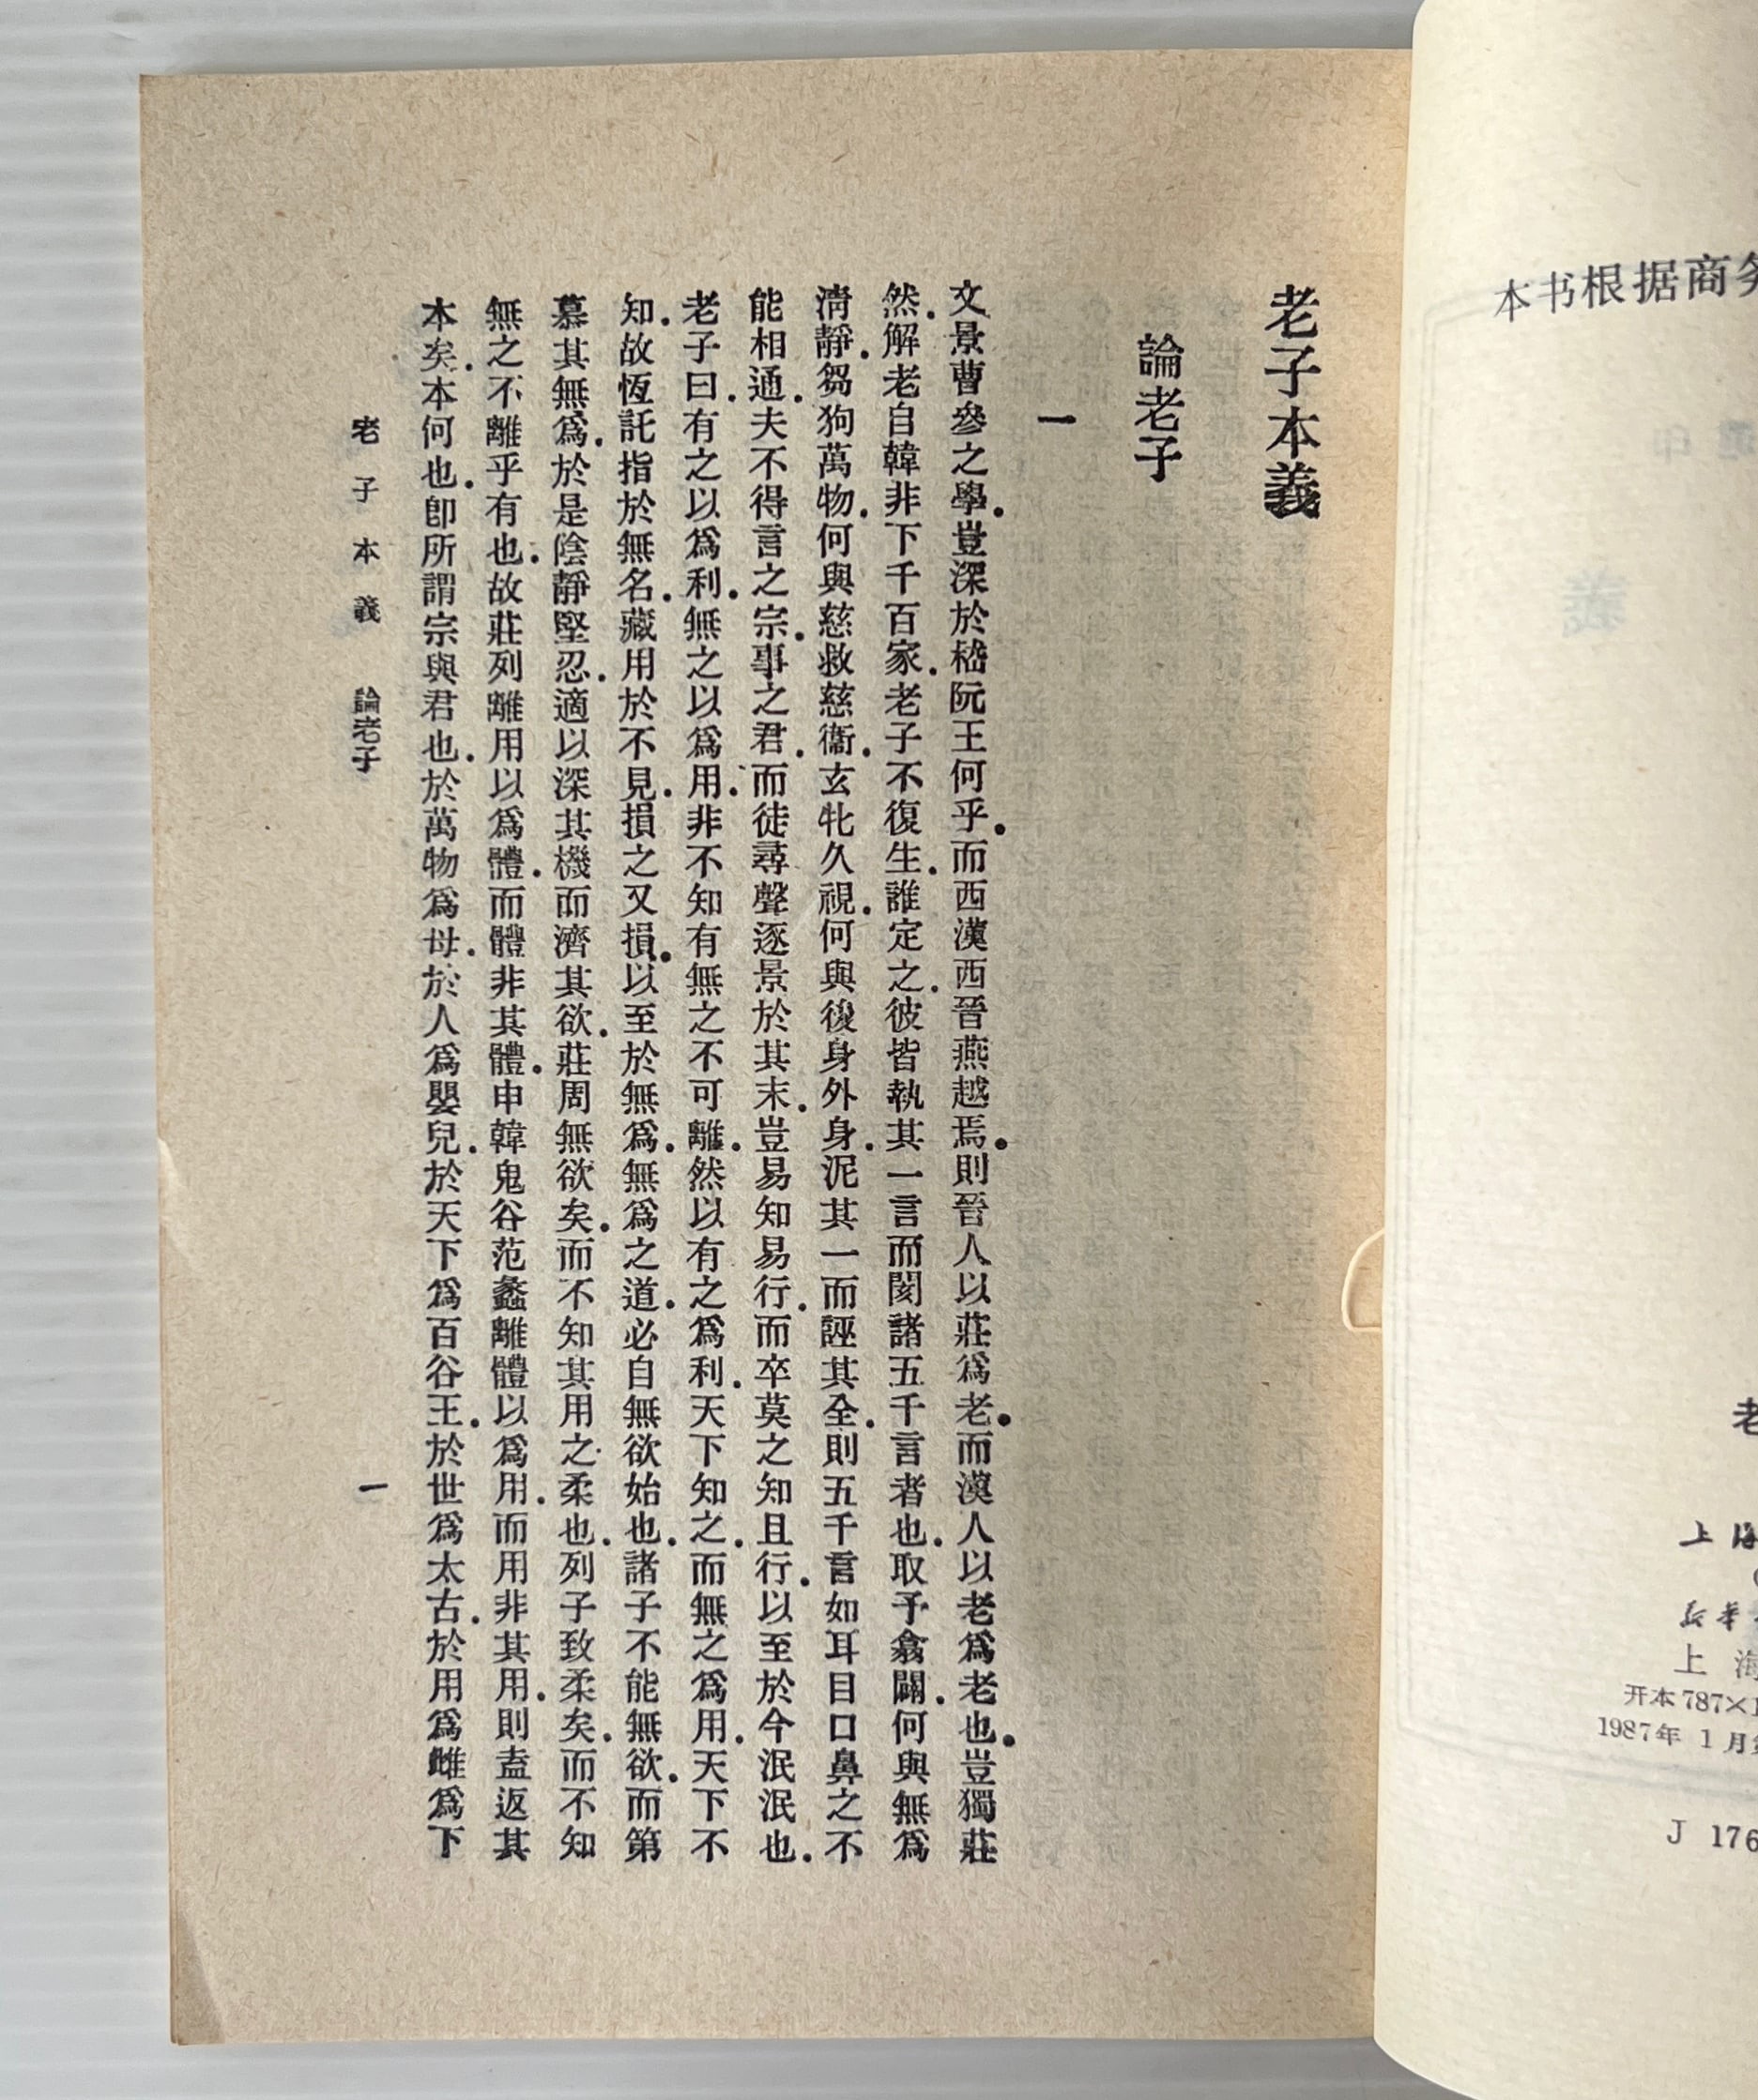 老子本義
論老子
一
文景曹參之學．豈深於嵇阮王何乎．而西漢西晉燕越焉．則晉人以莊爲老．而漢人以老爲老也．豈獨莊
然．解老自韓非下千百家．老子不復生．誰定之．彼皆執其一言而閡諸五千言者也．取予翕闢．何與無爲
淸靜．芻狗萬物．何與慈救慈衞．玄牝久視．何與後身外身．泥其一而誣其全．則五千言如耳目口鼻之不
能相通．夫不得言之宗．事之君．而徒尋聲逐景於其末．豈易知易行．而卒莫之知且行．以至於今泯泯也．
老子曰．有之以爲利．無之以爲用．非不知有無之不可離．然以有之爲利．天下知之．而無之爲用．天下不
知．故恆託指於無名．藏用於不見．損之又損．以至於無爲．無爲之道．必自無欲始也．諸子不能無欲．而第
慕其無爲．於是陰靜堅忍．適以深其機而濟其欲．莊周無欲矣．而不知其用之柔也．列子致柔矣．而不知
無之不離乎有也．故莊列離用以爲體．而體非其體．申韓鬼谷范蠡離體以爲用．而用非其用．則盍返其
本矣．本何也．卽所謂宗與君也．於萬物爲母．於人爲嬰兒．於天下爲百谷王．於世爲太古．於用爲雌爲下
老子本義 論老子
一
本书根据商务
印
義
老
上海
新华
上海
开本787×1
1987年 1月第
J 176